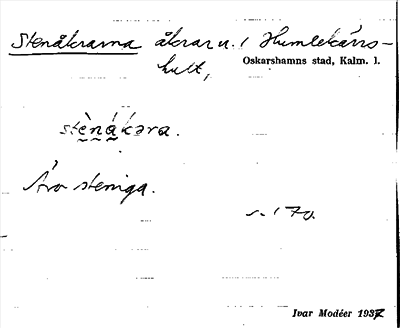 Stenåkrarna åkrar u. / Humlekärrs-
hult,
Oskarshamns stad, Kalm. l.
stènákəra.
Äro steniga.
s. 170.
Ivar Modéer 1937